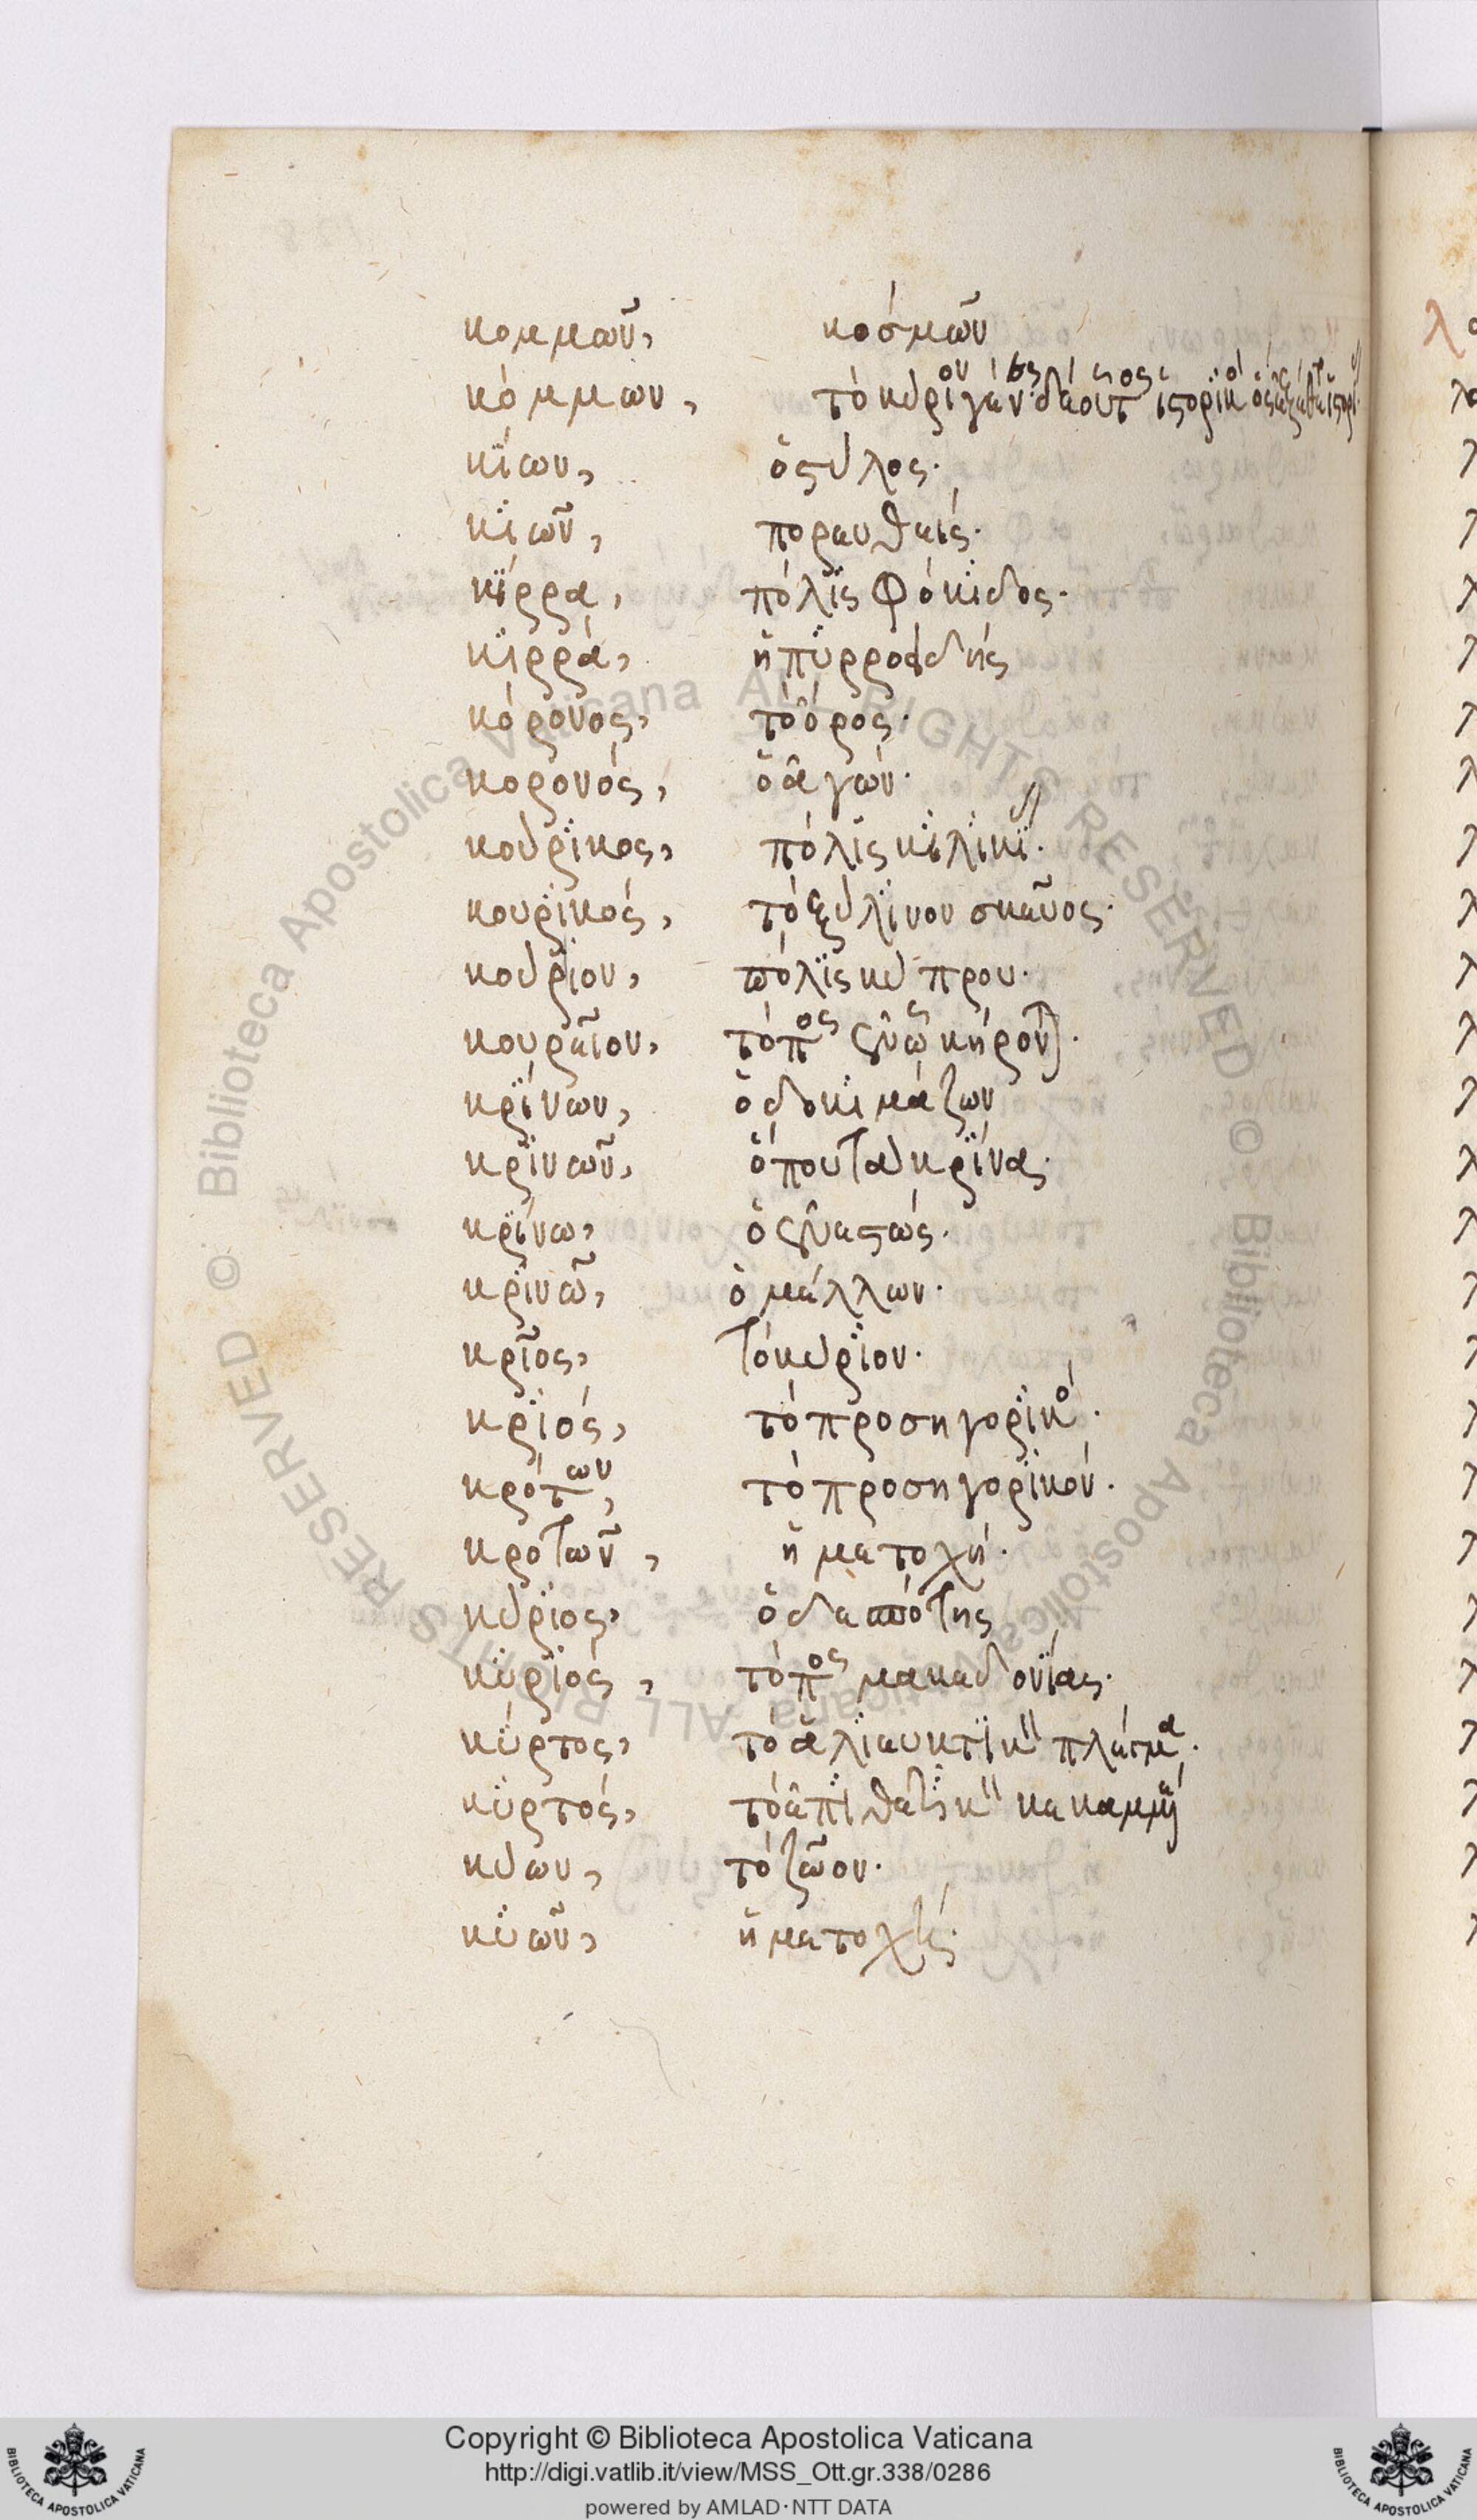 κομμῶν, κοσμῶν
κόμμων, τὸ κύριον
κΐων, ὁ στύλος.
κϊῶν, πορευθείς.
κΐρρα, πόλϊς Φόκϊδος.
κϊρρά, ἡ πϋρροειδής
κόρονος, τὸ ὄρος.
κορονός, ὁ ἀγών.
κούρϊκος, πόλϊς κϊλϊκΐ.
κουρϊκός, τὸ ξύλϊνον σκεῦος.
κούρϊον, πόλϊς κύπρου.
κουρεῖον, τόπος
κρΐνων, ὁ δοκϊμάζων
κρϊνῶν, ὅπου τὰ κρΐνα.
κρΐνω, ὁ ἐνεστώς.
κρϊνῶ, ὁ μέλλων.
κρῖος, τὸ κύρϊον.
κρϊός, τὸ προσηγορϊκό.
κρότων, τὸ προσηγορϊκόν.
κροτῶν, ἡ μετοχή.
κύρϊος, ὁ δεσπότης
κϋρϊός, τόπος μακεδονΐας.
κύρτος, τὸ ἁλϊευτϊκ πλέγμα.
κϋρτός, τὸ ἐπϊθετϊκ
κύων, τὸ ζῶον.
κϋῶν, ἡ μετοχής.
λ
Copyright © Biblioteca Apostolica Vaticana
http://digi.vatlib.it/view/MSS_Ott.gr.338/0286
powered by AMLAD·NTT DATA
BIBLIOTECA APOSTOLICA VATICANA
BIBLIOTECA APOSTOLICA VATICANA
© Biblioteca Apostolica Vaticana ALL RIGHTS RESERVED © Biblioteca Apostolica Vaticana ALL RIGHTS RESERVED